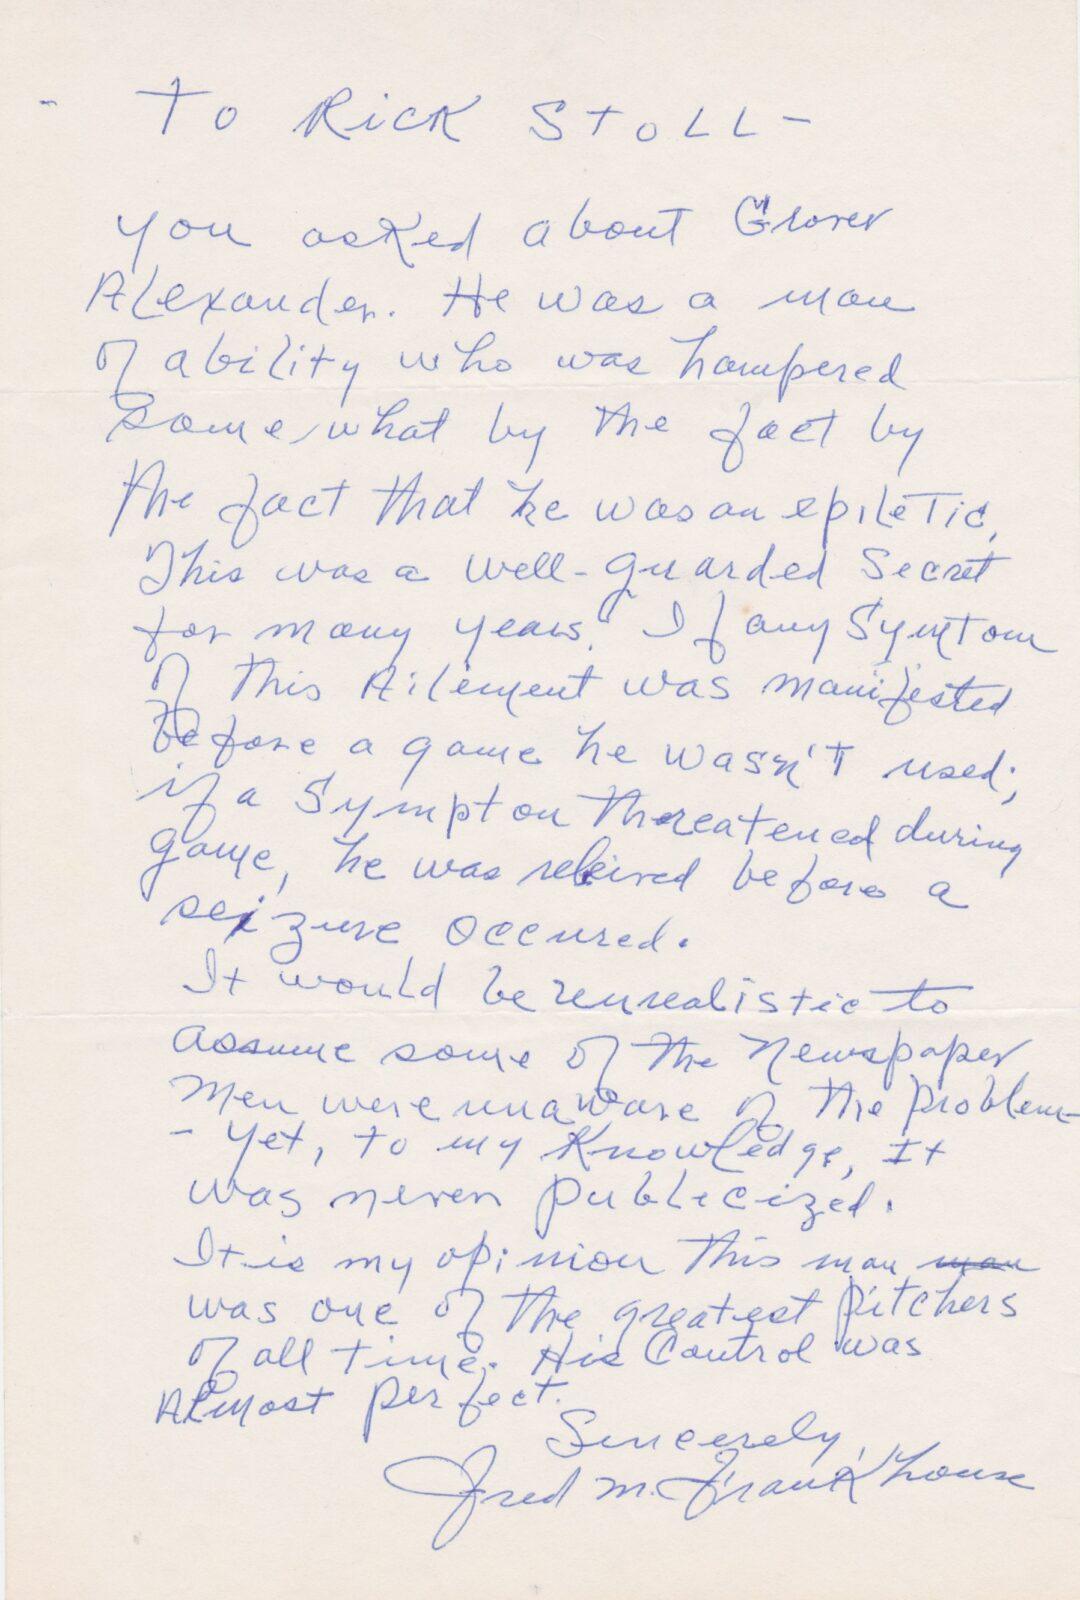 To Rick Stoll-
you asked about Grover
Alexander. He was a man
of ability who was hampered
somewhat by the fact by
the fact that he was an epiletic.
This was a well-guarded Secret
for many years. If any Symtom
of this Ailement was manifested
before a game he wasn't used;
if a Sympton threatened during
game, he was releived before a
seizure occured.
It would be unrealistic to
assume some of the Newspaper
Men were unaware of the problem-
- yet, to my Knowledge, It
was never publicized.
It is my opinion this man man
was one of the greatest pitchers
of all time. His Control was
Almost perfect.
Sincerely,
Fred M. Frankhouse